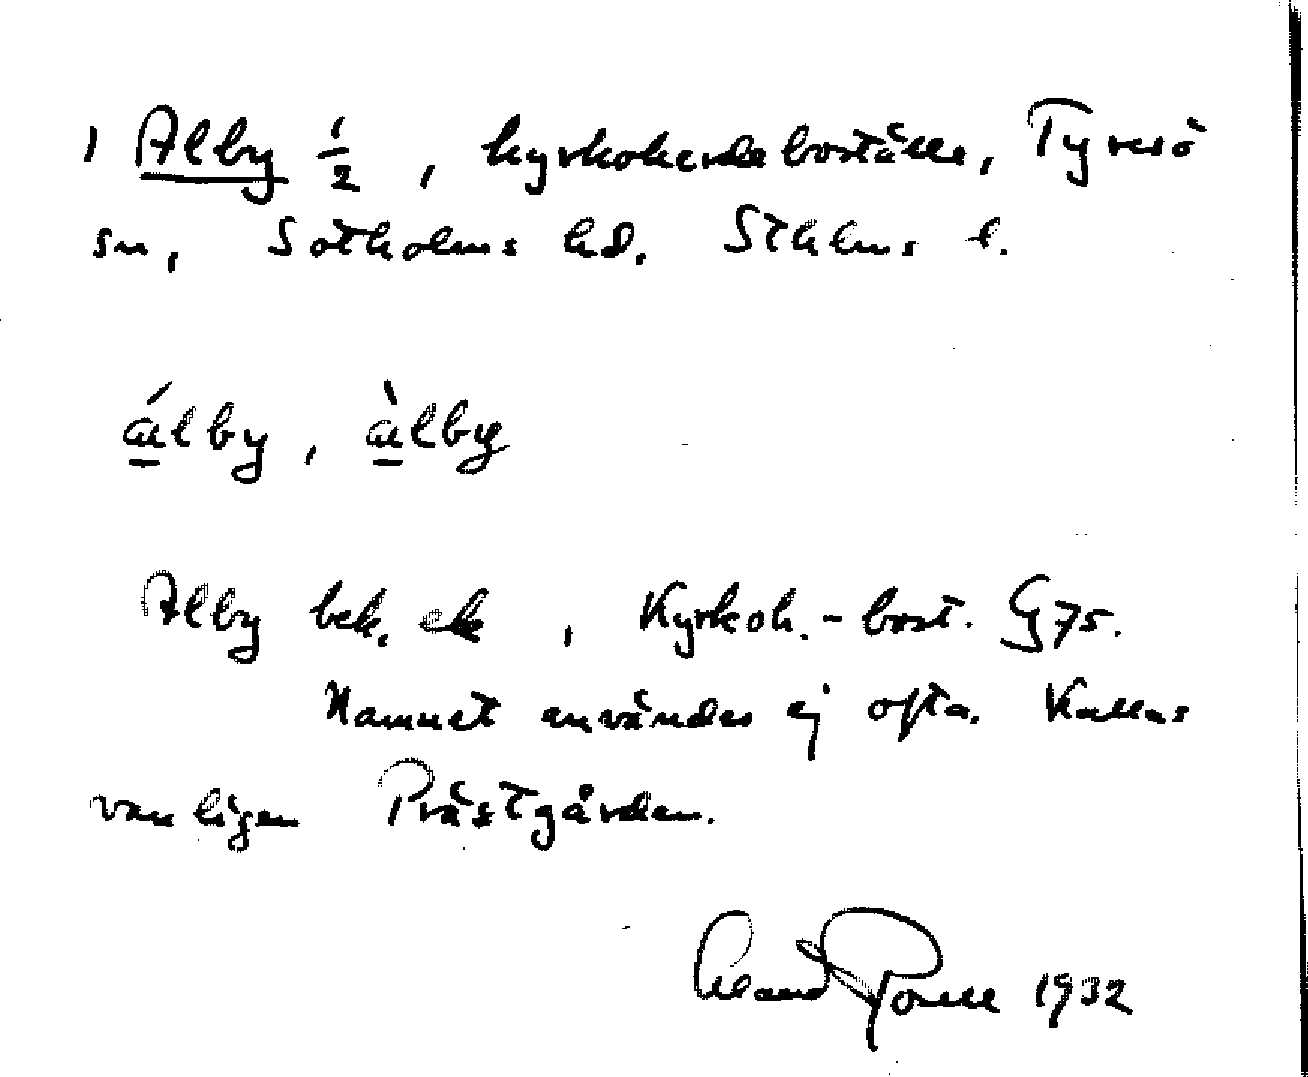 1 Alby 1/2, kyrkoherdeboställe, Tyresö
sn, Sotholms hd. Sthlms l.
álby, àlby
Alby bek. ek, Kyrkoh.-bost. G 75.
Namnet användes ej ofta. Kallas
vanligen Prästgården.
1932